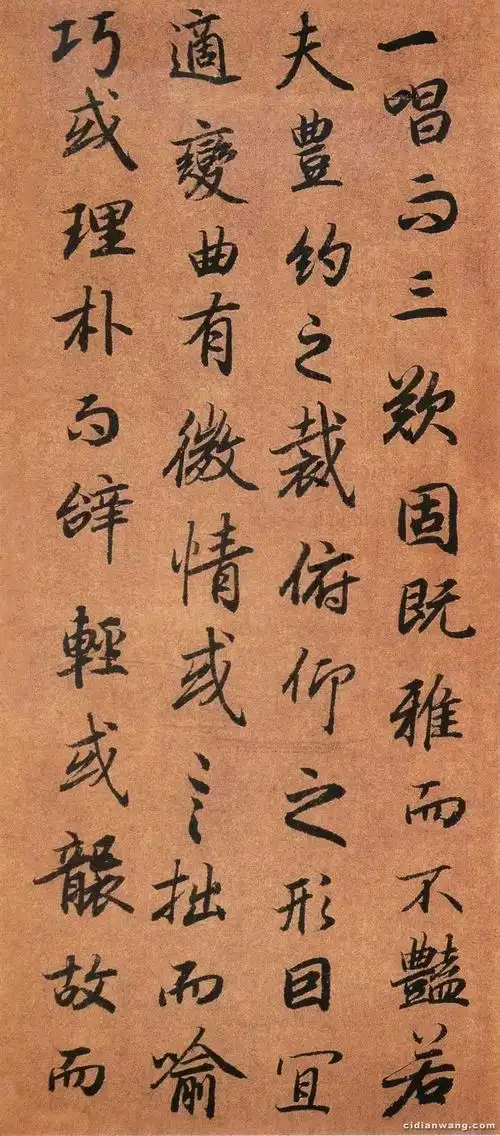 一唱而三歎固既雅而不豔若
夫豊約之裁俯仰之形因宜
適變曲有微情或言拙而喻
巧或理朴而辞輕或襲故而
cidianwang.com